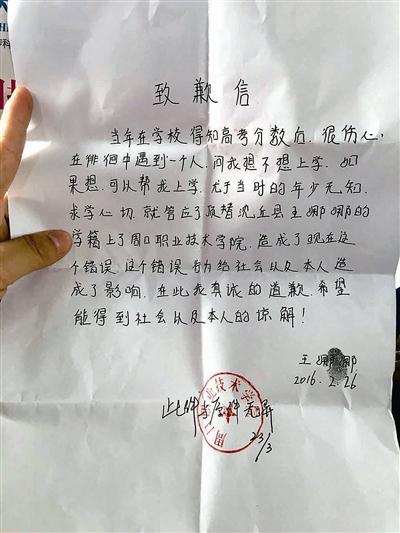 致歉信
当年在学校得知高考分数后.很伤心,
在徘徊中遇到一个人.问我想不想上学.如
果想.可以帮我上学.尤于当时的年少无知.
求学心切.就答应了顶替沈丘县王娜娜的
学籍上了周口职业技术学院.造成了现在这
个错误.这个错误行为给社会以及本人造
成了影响.在此我真诚的道歉.希望
能得到社会以及本人的谅解!
王娜娜
2016.2.26
此件与原件无异
23/3